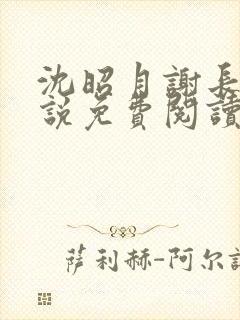 沈昭月謝長
說免費閱讀
薩利赫-阿尔諾